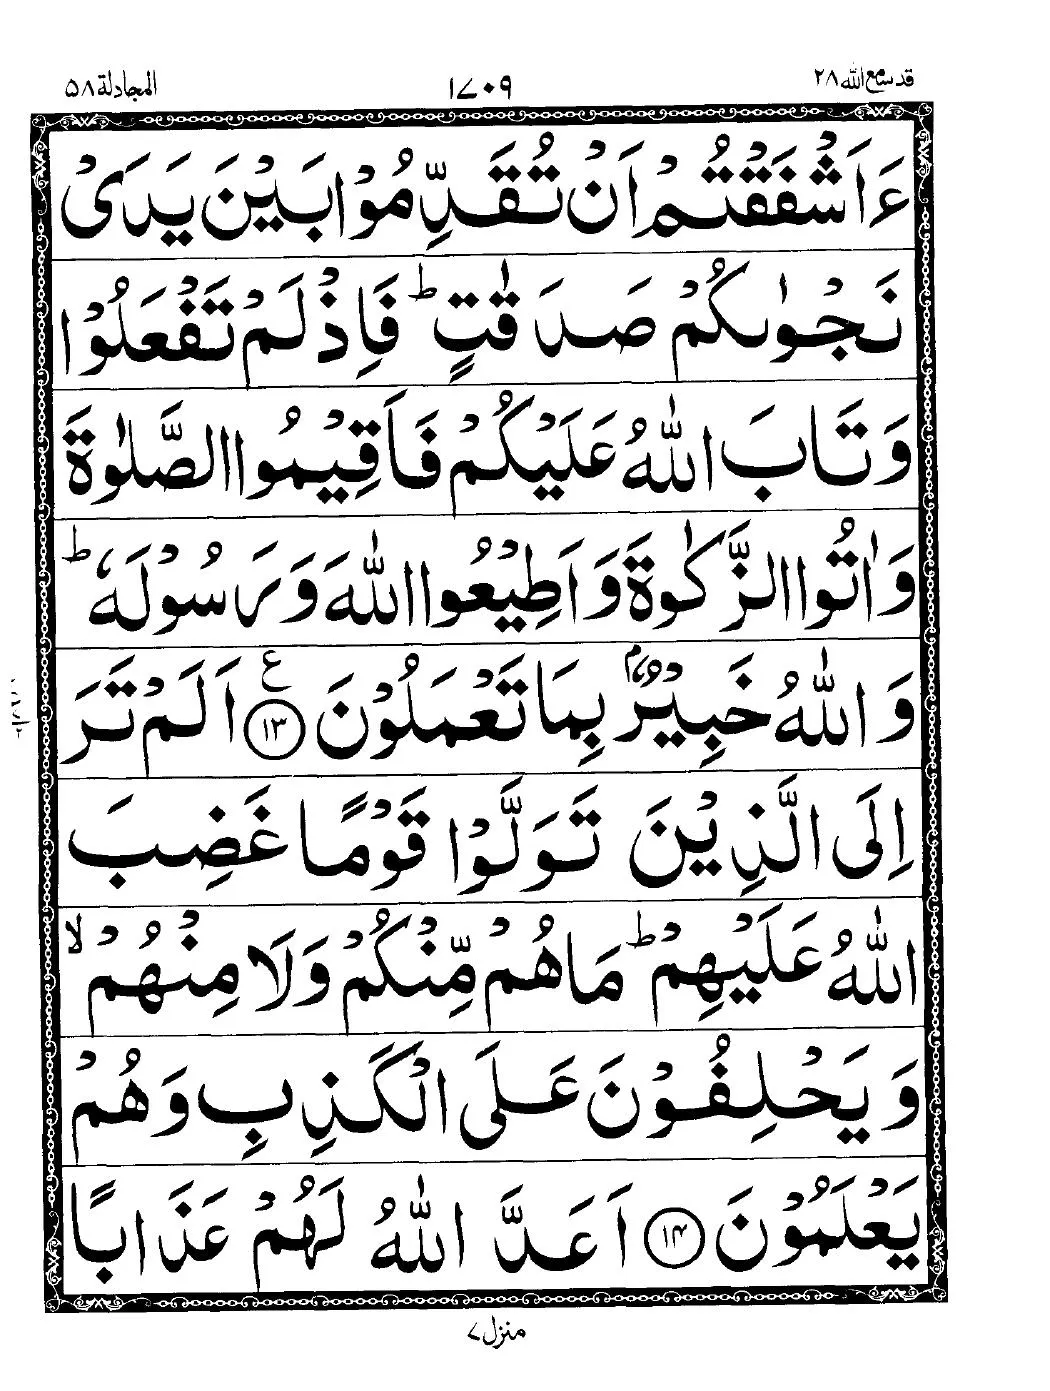 قد سمع الله ٢٨
١٧٠٩
المجادلة ٥٨
ءَاَشْفَقْتُمْ اَنْ تُقَدِّمُوْا بَيْنَ يَدَىْ
نَجْوٰىكُمْ صَدَقٰتٍ ؕ فَاِذْ لَمْ تَفْعَلُوْا
وَتَابَ اللّٰهُ عَلَيْكُمْ فَاَقِيْمُوا الصَّلٰوةَ
وَاٰتُوا الزَّكٰوةَ وَاَطِيْعُوا اللّٰهَ وَرَسُوْلَهٗ ؕ
وَاللّٰهُ خَبِيْرٌۢ بِمَا تَعْمَلُوْنَ ﴿١٣﴾ ع اَلَمْ تَرَ
اِلَى الَّذِيْنَ تَوَلَّوْا قَوْمًا غَضِبَ
اللّٰهُ عَلَيْهِمْ ؕ مَا هُمْ مِّنْكُمْ وَلَا مِنْهُمْ ۙ
وَيَحْلِفُوْنَ عَلَى الْكَذِبِ وَهُمْ
يَعْلَمُوْنَ ﴿١٤﴾ اَعَدَّ اللّٰهُ لَهُمْ عَذَابًا
منزل ٧